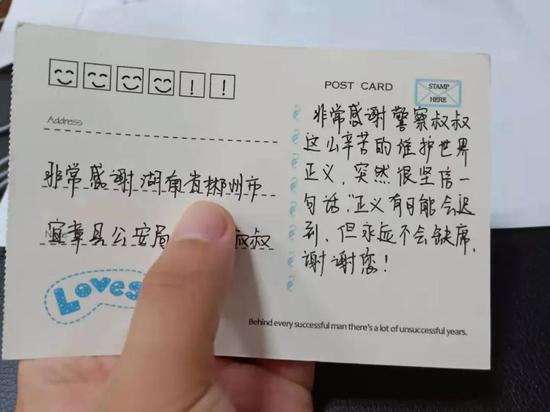 ! !
POST CARD
STAMP
HERE
Address
非常感谢湖南省郴州市
宜章县公安局 叔叔
Loves
非常感谢警察叔叔
这么辛苦的维护世界
正义,突然很坚信一
句话:"正义有可能会迟
到,但永远不会缺席,
谢谢您!
Behind every successful man there's a lot of unsuccessful years.